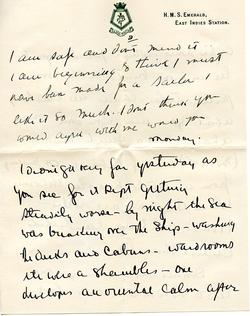 H.M.S. EMERALD,
EAST INDIES STATION.
2
I am safe and don't mind it
I am beginning to think I must
have been made for a sailor I
like it so much. I don't think you
would agree with me would you
Monday.
I didn't get very far yesterday as
you see for it kept getting
steadily worse – by night the sea
was breaking over the ship – washing
the decks and cabins – wardrooms
etc were a shambles – one
develops an oriental calm after